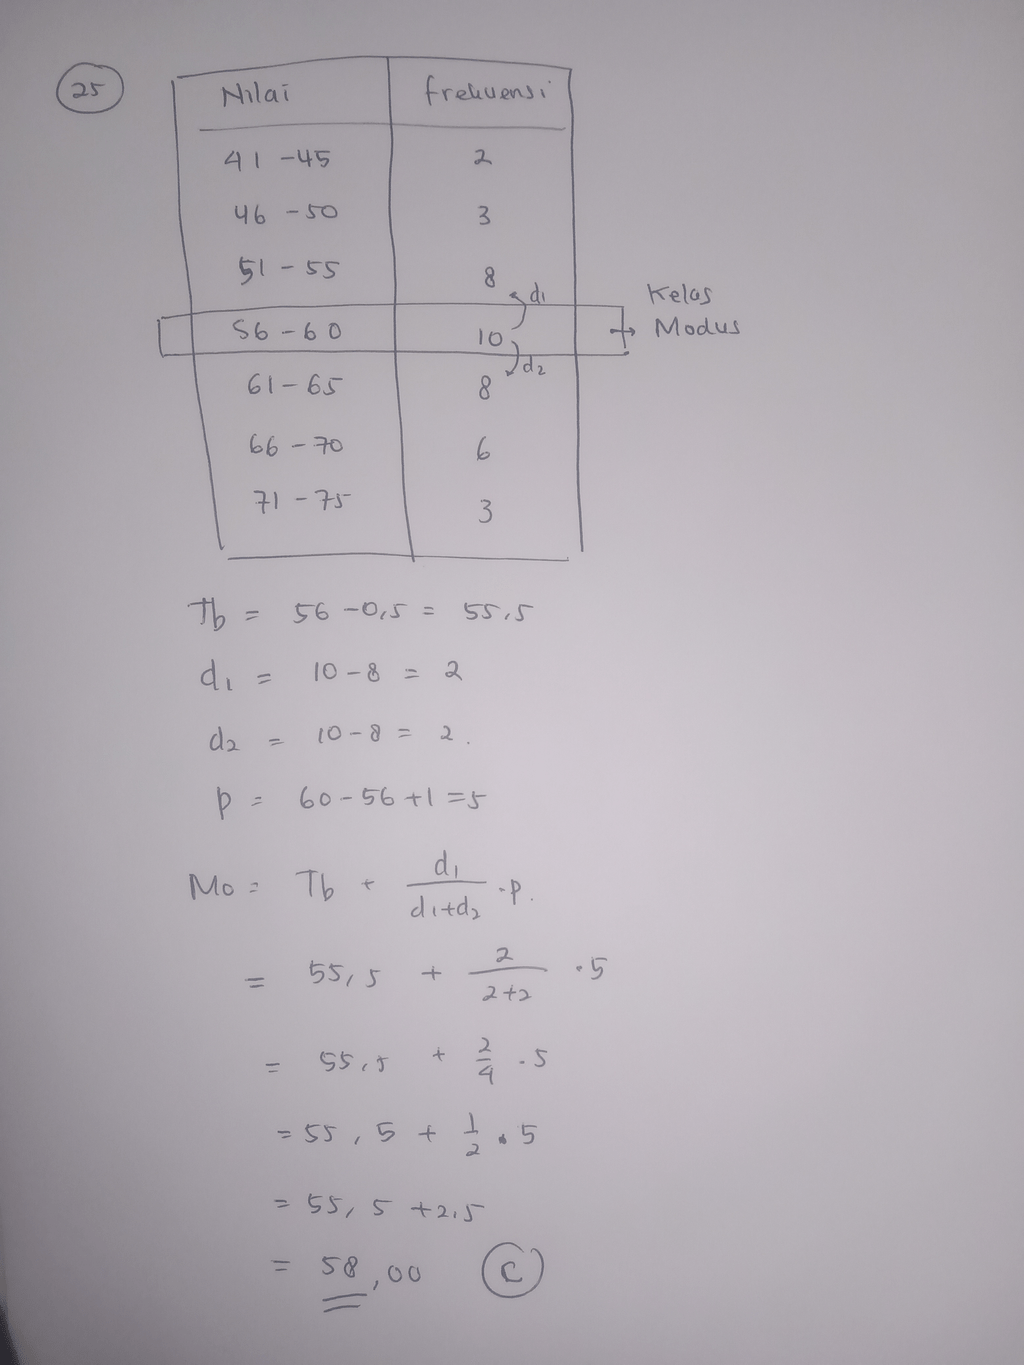 25
Nilai frekuensi
41 - 45 2
46 - 50 3
51 - 55 8
d1
Kelas
56 - 60 10 → Modus
d2
61 - 65 8
66 - 70 6
71 - 75 3
Tb = 56 - 0,5 = 55,5
d1 = 10 - 8 = 2
d2 = 10 - 8 = 2.
p = 60 - 56 + 1 = 5
Mo = Tb + d1/(d1+d2) . p.
= 55,5 + 2/(2+2) . 5
= 55,5 + 2/4 . 5
= 55,5 + 1/2 . 5
= 55,5 + 2,5
= 58,00 C